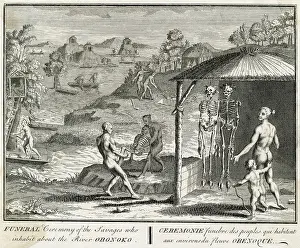 FUNERAL Ceremony of the Savages who
inhabit about the River ORONOKO.
CEREMONIE funebre des peuples qui habitent
aux environs du fleuve ORENOQUE.